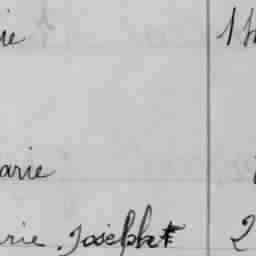 ie 1
arie
rie Joseph 2